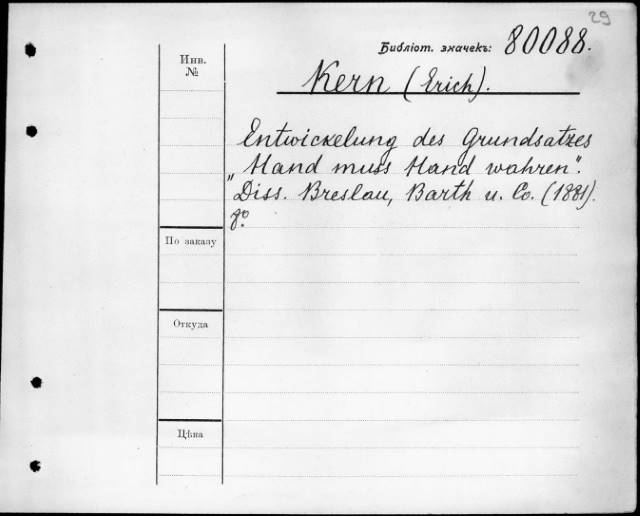 29
Библіот. значекъ: 80088.
Инв.
№
Kern (Erich).
Entwickelung des Grundsatzes
„Hand muss Hand wahren".
Diss. Breslau, Barth u. Co. (1881).
8º.
По заказу
Откуда
Цѣна